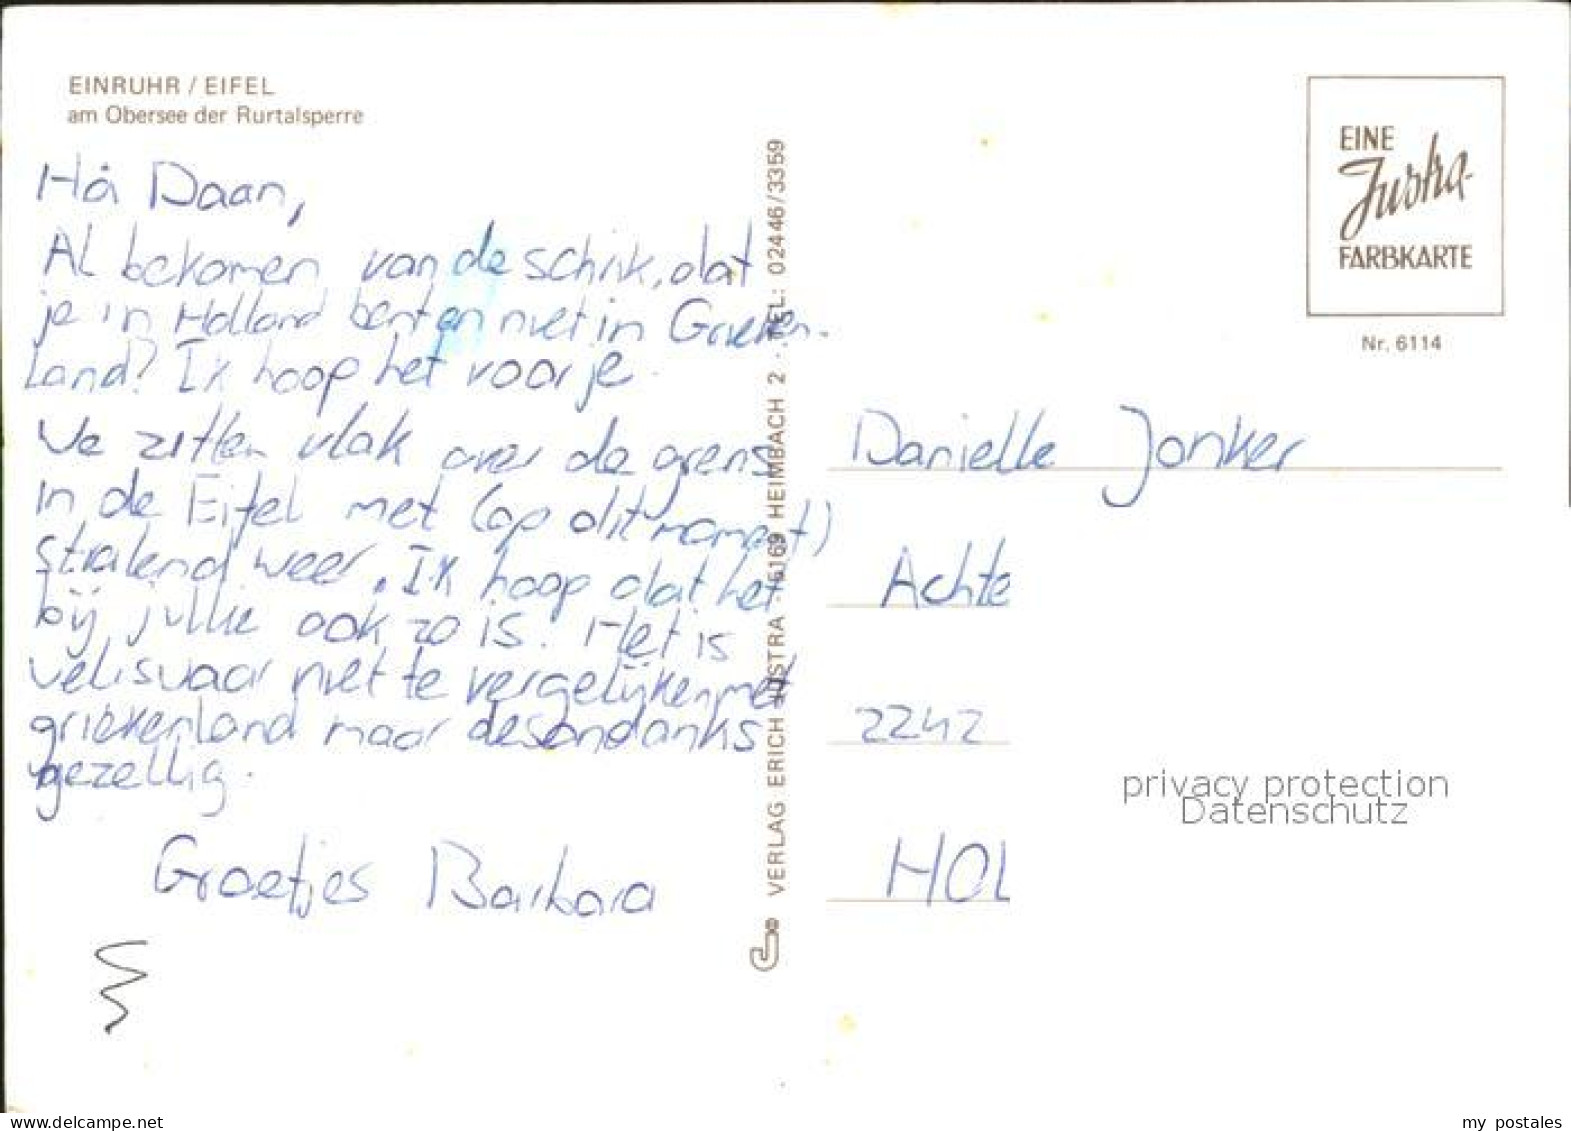 EINRUHR / EIFEL
am Obersee der Rurtalsperre
Hå Daan,
Al bekomen van de schrik, dat
je in Holland bent en niet in Grieken-
land? Ik hoop het voor je.
We zitten vlak over de grens
in de Eifel met (op dit moment)
stralend weer. Ik hoop dat het
bij jullie ook zo is. Het is
weliswaar niet te vergelijken met
griekenland maar desondanks
gezellig.
Groetjes Barbara
VERLAG ERICH JUSTRA · 5169 HEIMBACH 2 · TEL: 02446/3359
EINE
Justra-
FARBKARTE
Nr. 6114
Danielle Jonker
Achte
2242
HOL
privacy protection
Datenschutz
delcampe.net
my_postales